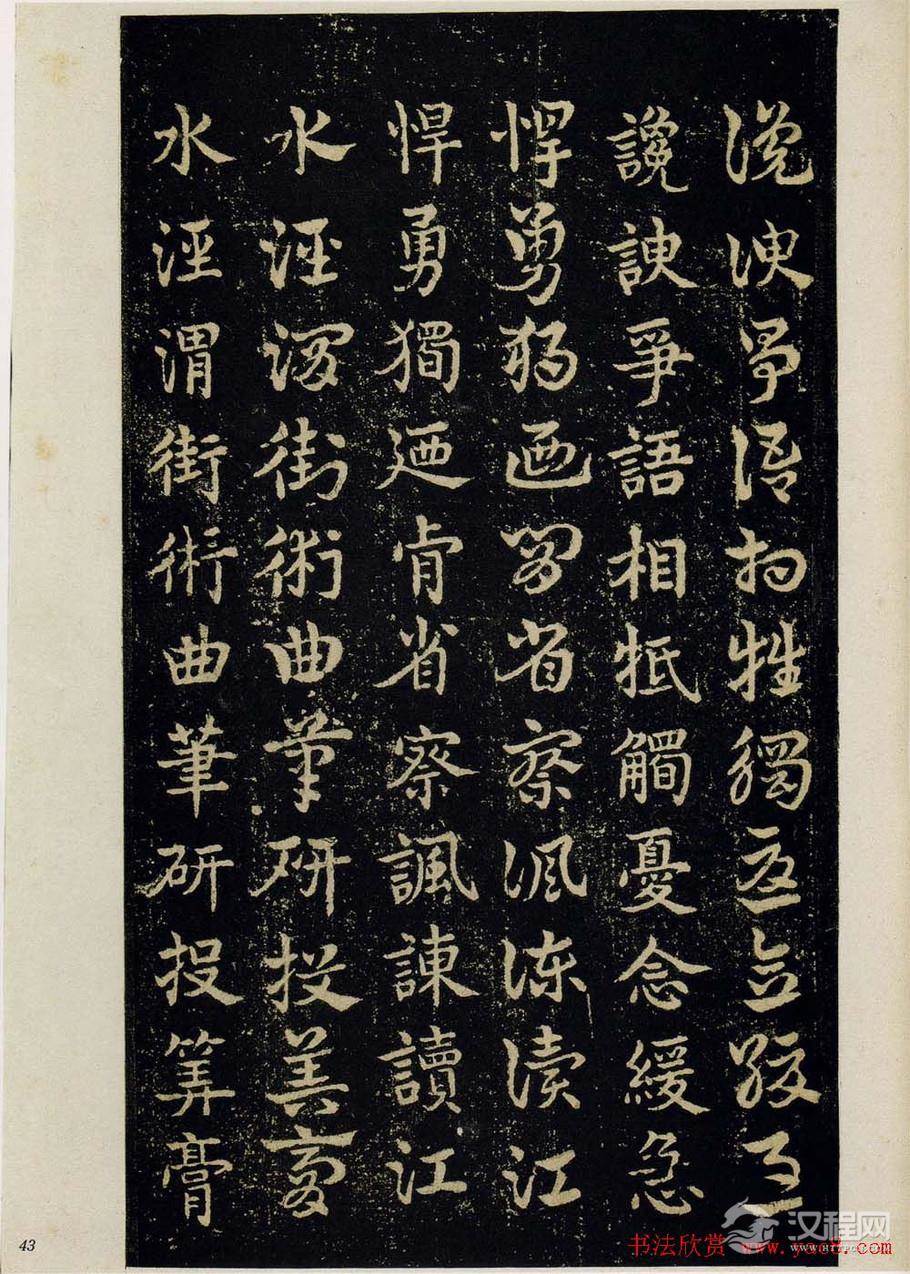 讒諛爭語相牴觸憂念緩急
讒諛爭語相牴觸憂念緩急
悍勇獨迺肯省察諷諫讀江
悍勇獨迺肯省察諷諫讀江
水涇渭街術曲筆研投筭膏
水涇渭街術曲筆研投筭膏
43
书法欣赏
汉程网